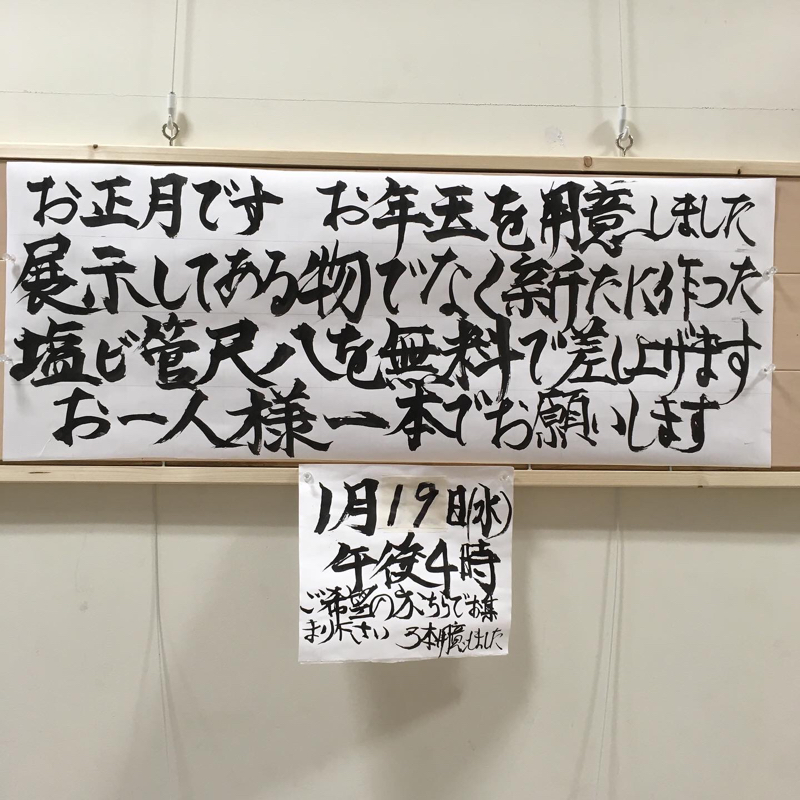 お正月です お年玉を用意しました
展示してある物でなく新たに作った
塩ビ管尺八を無料で差し上げます
お一人様一本でお願いします
1月19日(水)
午後4時
ご希望の方こちらでお集
まり下さい 3本用意しました